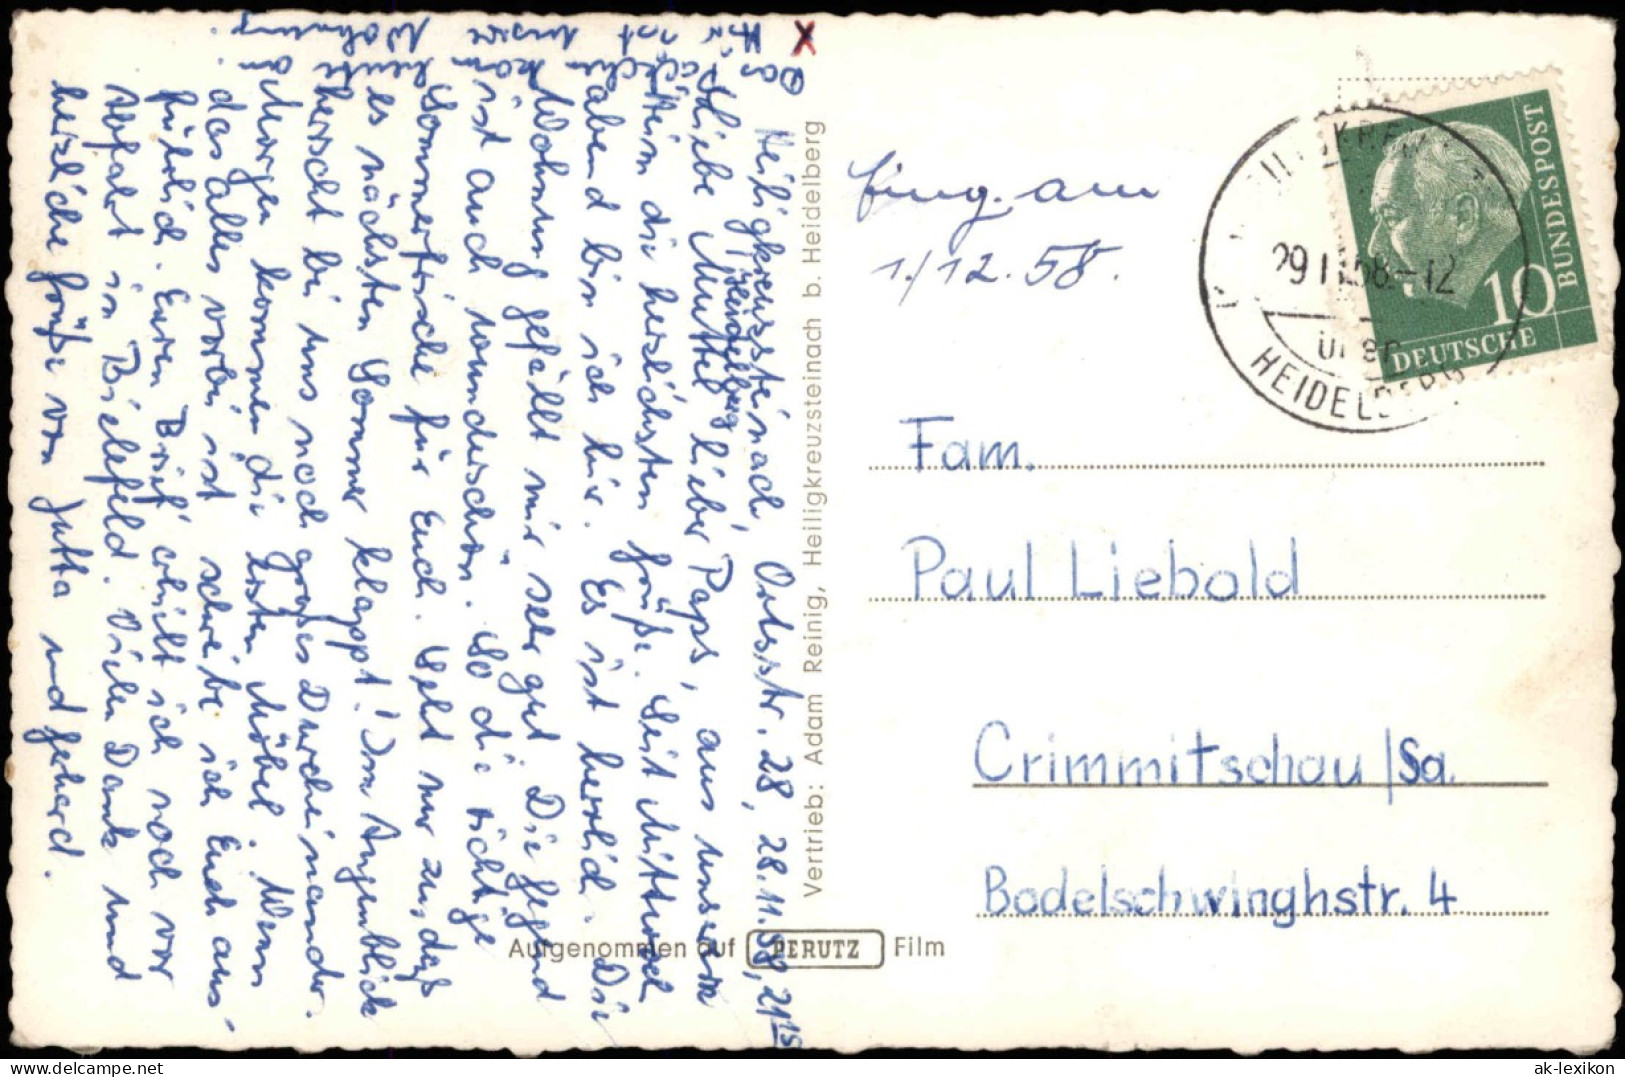 Heiligkreuzsteinach, Ortsstr. 28, 28.11.58, 21¹⁵
über Heidelberg
Liebe Mutti, lieber Paps, aus unserm
Heim die herzlichsten Grüße. Seit Mittwoch
abend bin ich hier. Es ist herrlich. Die
Wohnung gefällt mir sehr gut. Die Gegend
ist auch wunderschön. So die richtige
Sommerfrische für Euch. Seht nur zu, daß
es nächsten Sommer klappt! Im Augenblick
herrscht bei uns noch großes Durcheinander.
Morgen kommen die ersten Möbel. Wenn
das alles vorbei ist schreibe ich Euch aus-
führlich. Euren Brief erhielt ich noch vor
Abfahrt in Bielefeld. Vielen Dank und
herzliche Grüße von Jutta und Gerhard.
X
Das
ist
unsre
Wohnung.
Vertrieb: Adam Reinig, Heiligkreuzsteinach b. Heidelberg
Aufgenommen auf PERUTZ Film
Eing. am
1./12.58.
29.11.58-12
über
HEIDELBERG
10
DEUTSCHE
BUNDESPOST
Fam.
Paul Liebold
Crimmitschau/Sa.
Bodelschwinghstr. 4
ak-lexikon